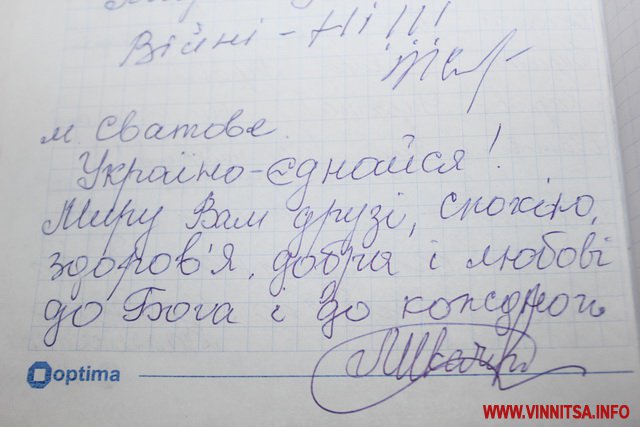 Війні - Ні!!!
м. Сватове.
Україно-єднайся!
Миру Вам друзі, спокію,
здоров'я, добра і любові
до Бога і до кожного.
optima
WWW.VINNITSA.INFO